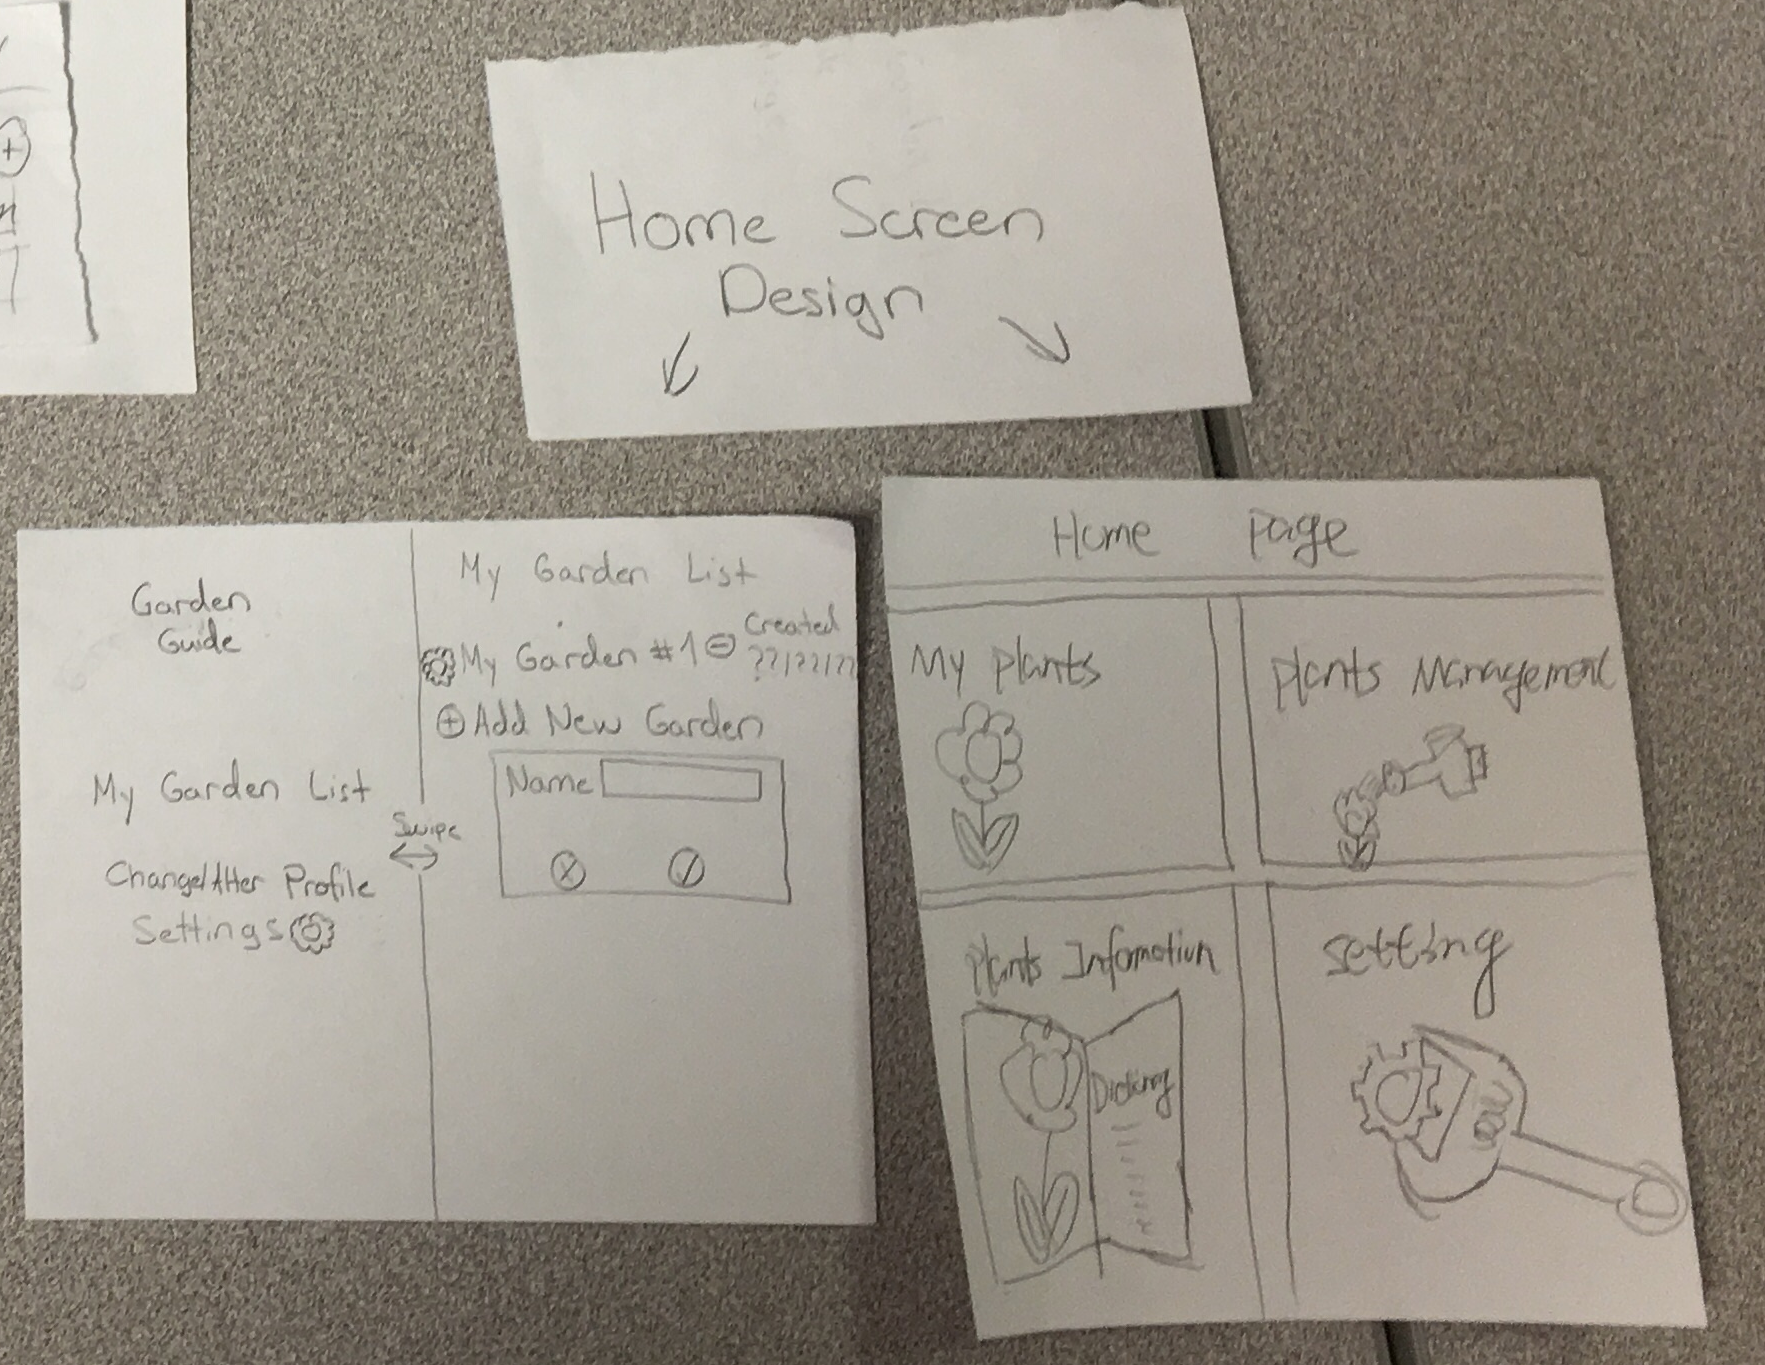 Home Screen
Design
Garden
Guide
My Garden List
Change/Alter Profile
Settings
Swipe
My Garden List
My Garden #1
Created
??/??/??
Add New Garden
Name
Home Page
My Plants
Plants Management
Plants Infomation
Setting